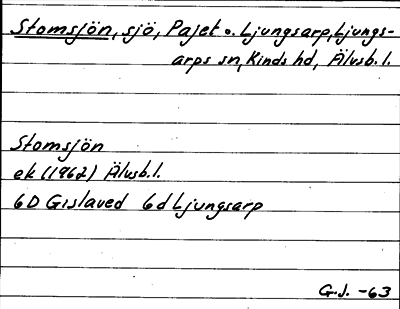 Stomsjön, sjö, Pajet o. Ljungsarp, Ljungs-
arps sn, Kinds hd, Älvsb. l.
Stomsjön
ek (1962) Älvsb. l.
6D Gislaved 6d Ljungsarp
G.J. -63